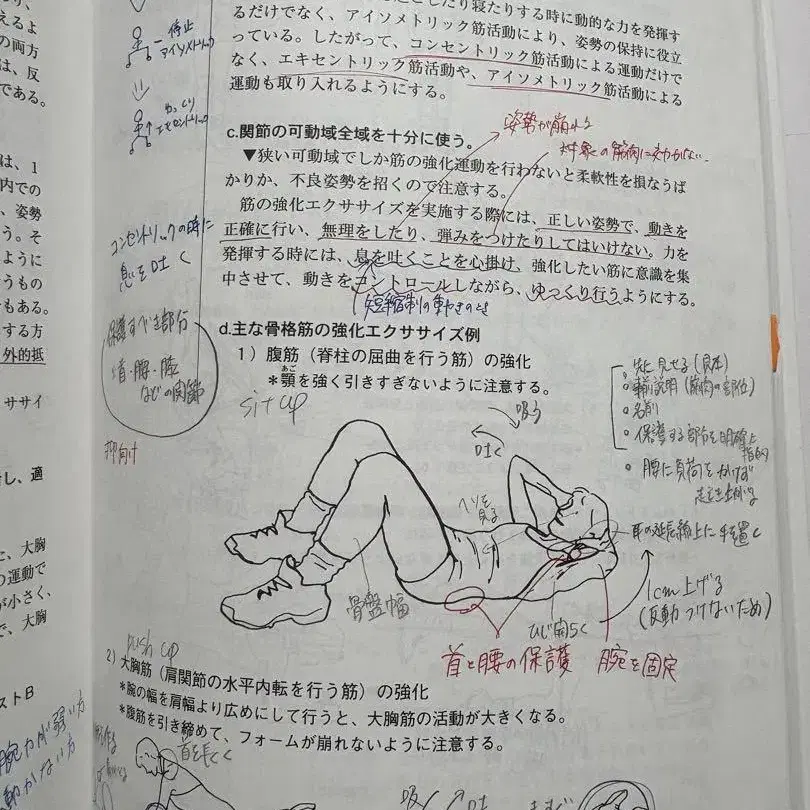 したり寝たりする時に動的な力を発揮す
るだけでなく、アイソメトリック筋活動により、姿勢の保持に役立
っている。したがって、コンセントリック筋活動による運動だけで
なく、エキセントリック筋活動や、アイソメトリック筋活動による
運動も取り入れるようにする。
停止
アイソメトリック
ゆっくり
エキセントリック
姿勢が崩れる
対象の筋肉に効かない.
c.関節の可動域全域を十分に使う。
▼狭い可動域でしか筋の強化運動を行わないと柔軟性を損なうば
かりか、不良姿勢を招くので注意する。
筋の強化エクササイズを実施する際には、正しい姿勢で、動きを
正確に行い、無理をしたり、弾みをつけたりしてはいけない。力を
発揮する時には、息を吐くことを心掛け、強化したい筋に意識を集
中させて、動きをコントロールしながら、ゆっくり行うようにする。
短縮制の動きのとき
コンセントリックの時に
息を吐く
保護すべき部分
首・腰・膝
などの関節
仰向け
d.主な骨格筋の強化エクササイズ例
1）腹筋（脊柱の屈曲を行う筋）の強化
あご
＊顎を強く引きすぎないように注意する。
sit up
先に見せる(見本)
説明(筋肉の部位)
名前
保護する部分を明確に
指摘
腰に負荷をかけず
吸う
吐く
ヘソを
見る
耳の延長線上に手を置く
1cm上げる
(反動つけないため)
骨盤幅
ひじ開らく
首と腰の保護
腕を固定
push up
2）大胸筋（肩関節の水平内転を行う筋）の強化
＊腕の幅を肩幅より広めにして行うと、大胸筋の活動が大きくなる。
＊腹筋を引き締めて、フォームが崩れないように注意する。
首を長く
吸く
吐
えるよ
の両方
は、反
である。
は、1
内での
、姿勢
う。そ
ように
うもの
もある。
する方
外的抵
ササイ
し、適
、大胸
運動で
が小さく、
で、大胸
ストB
腕力が弱い方
動かない方